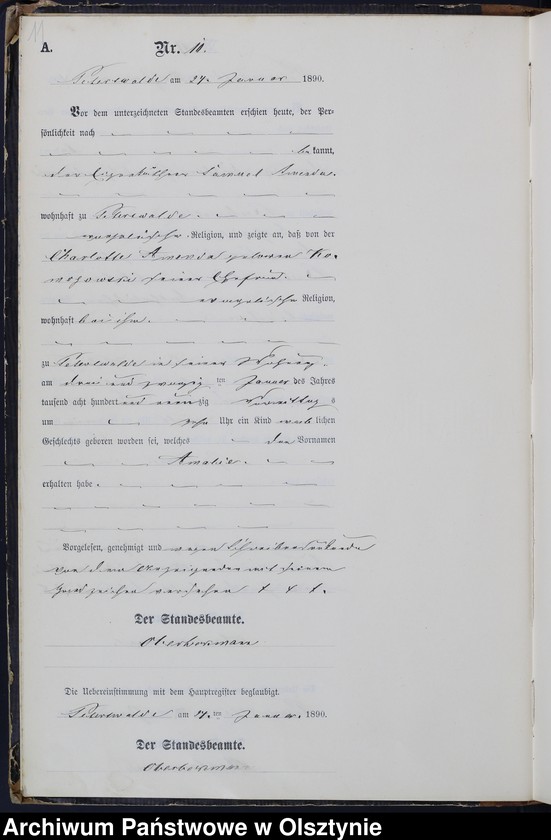 11
A. Nr. 11.
Peterswalde am 24. Januar 1890.
Vor dem unterzeichneten Standesbeamten erschien heute, der Per-
sönlichkeit nach
bekannt,
der Eigenkäthner Samuel
wohnhaft zu Peterswalde.
evangelischer Religion, und zeigte an, daß von der
Charlotte geboren
seiner Ehefrau.
evangelischer Religion,
wohnhaft bei ihm.
zu Peterswalde in seiner Wohnung.
am drei und zwanzig ten Januar des Jahres
tausend acht hundert und neunzig Vormittags
um zehn Uhr ein Kind weiblichen
Geschlechts geboren worden sei, welches den Vornamen
Amalie.
erhalten habe.
Vorgelesen, genehmigt und wegen Schreibensunkunde
von dem Anzeigenden mit seinem
Handzeichen versehen † † †.
Der Standesbeamte.
Die Uebereinstimmung mit dem Hauptregister beglaubigt.
Peterswalde am 24. ten Januar. 1890.
Der Standesbeamte.
Archiwum Państwowe w Olsztynie